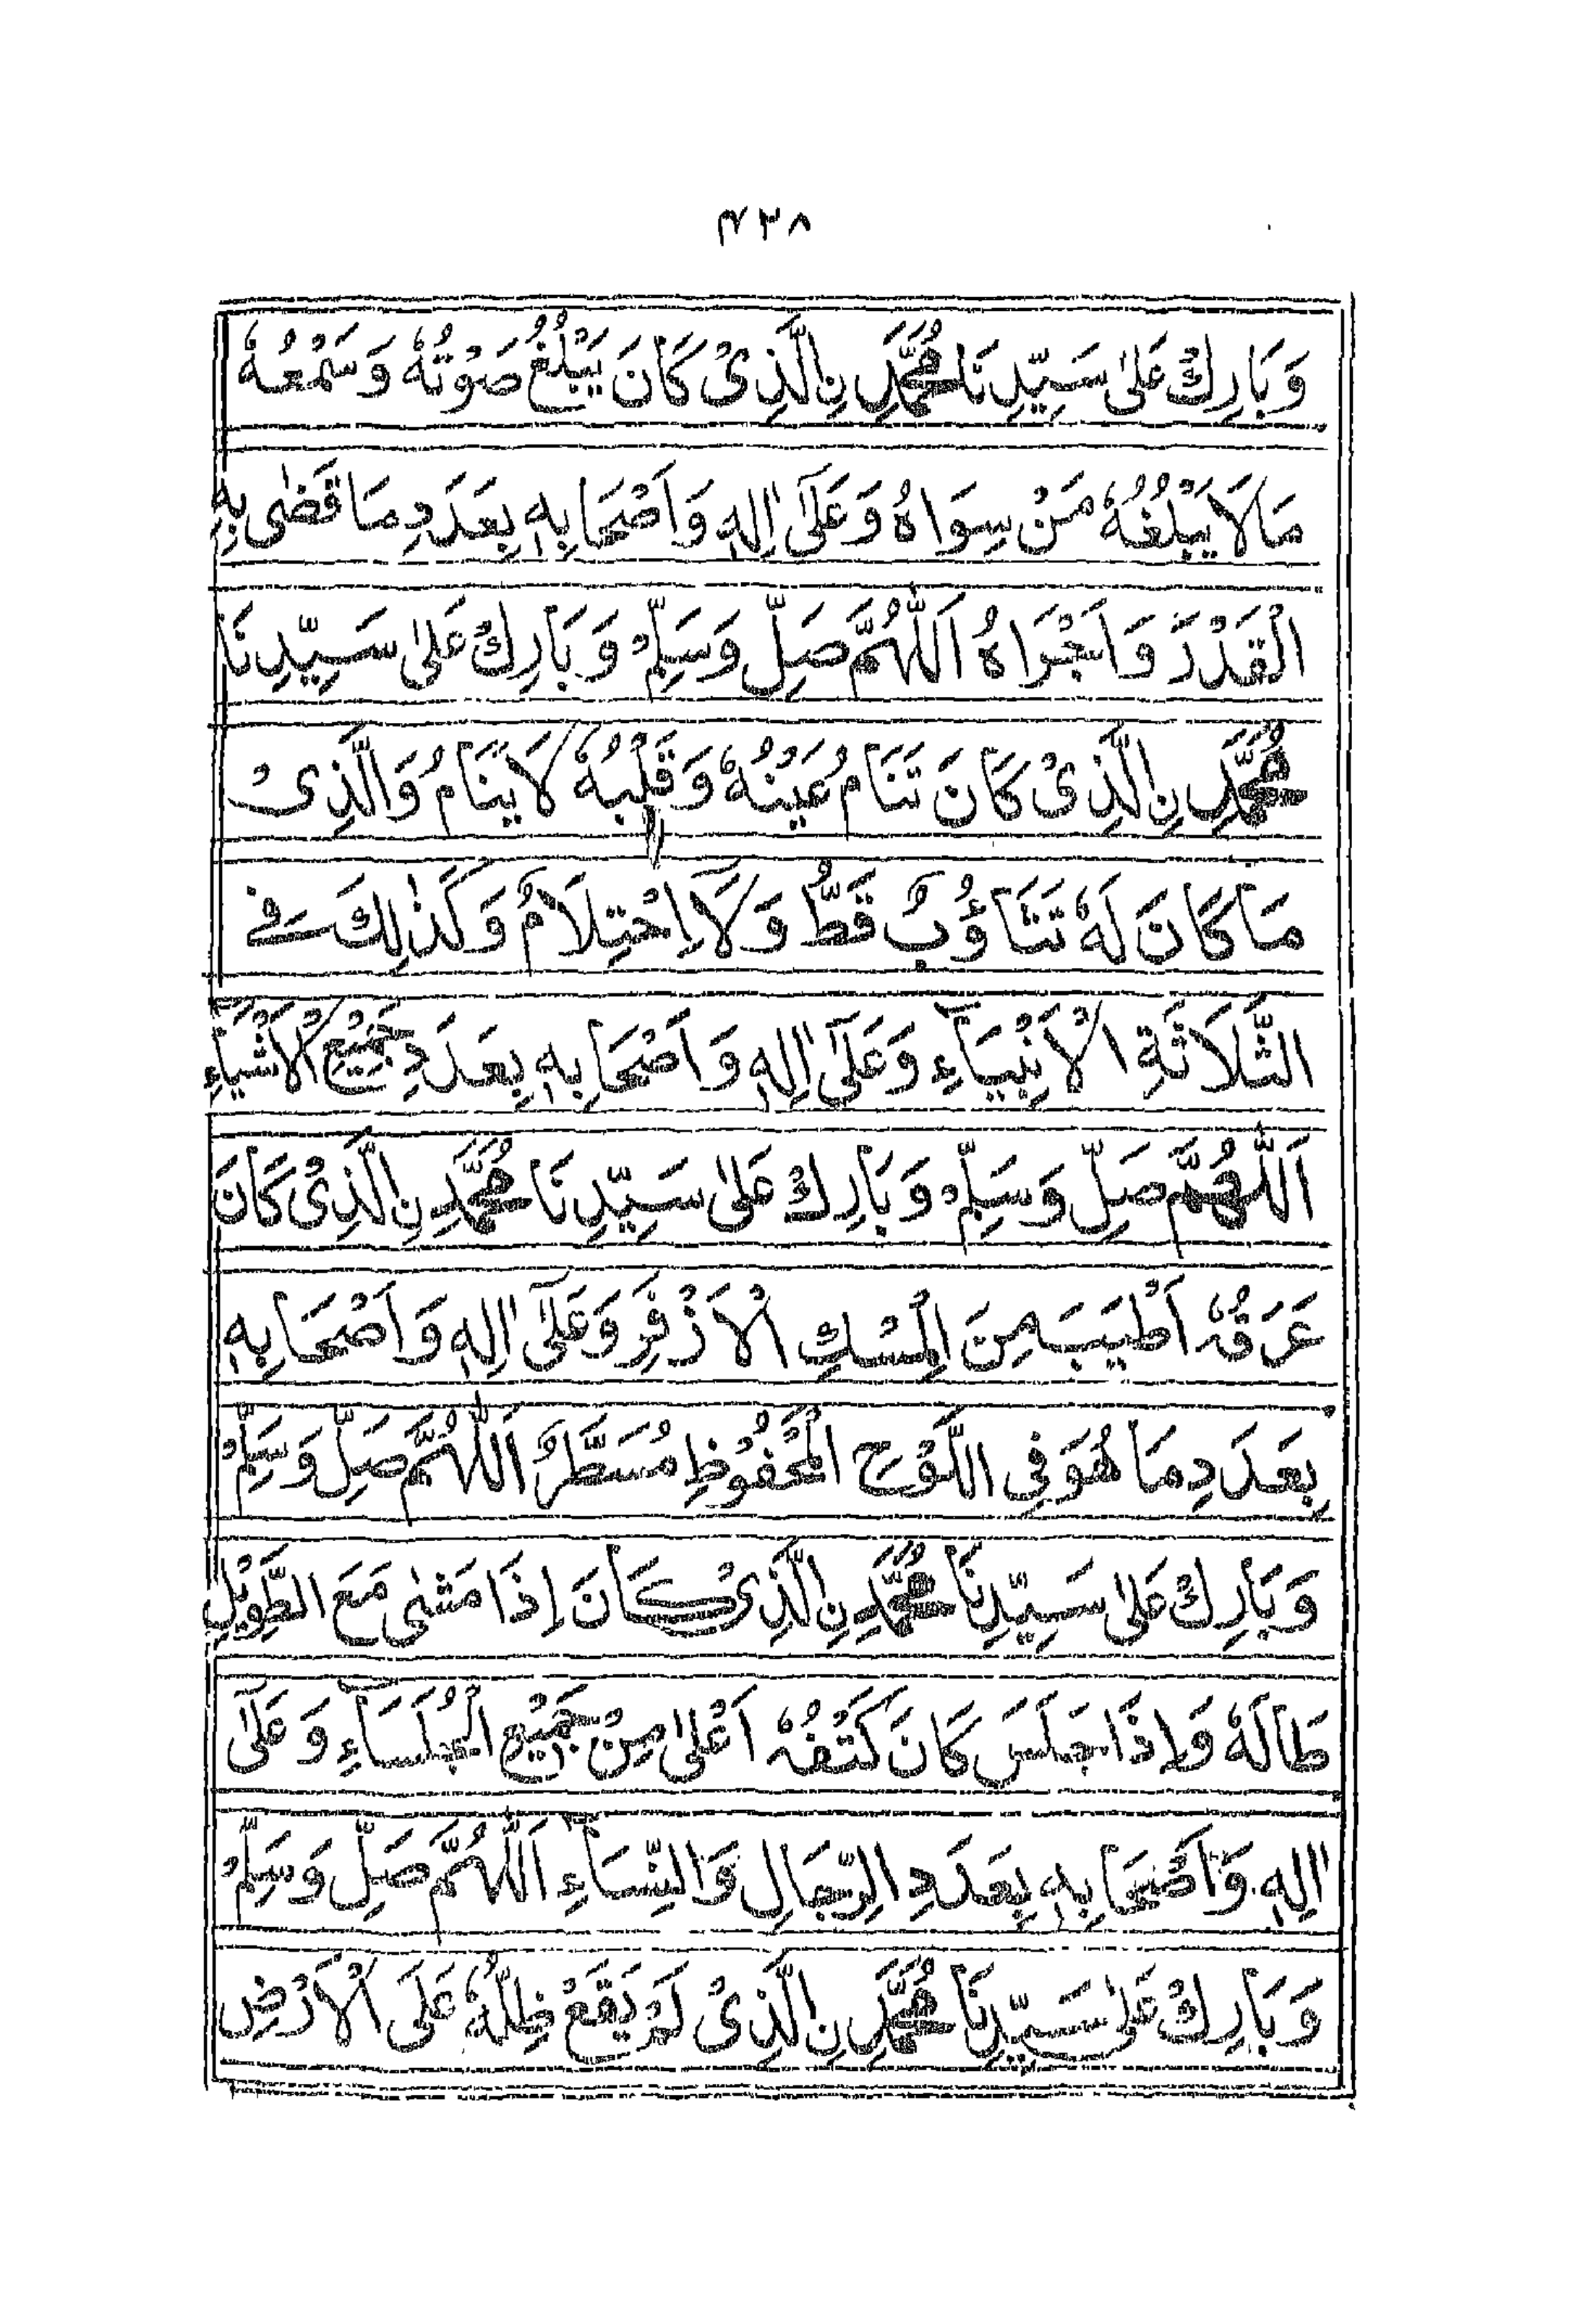 ۷۳۸
وَبَارِكْ عَلٰى سَيِّدِنَا مُحَمَّدِ نِ الَّذِىْ كَانَ يَبْلُغُ صَوْتُهٗ وَسَمْعُهٗ
مَا لَا يَبْلُغُهٗ مَنْ سِوَاهُ وَعَلٰٓى اٰلِهٖ وَاَصْحَابِهٖ بِعَدَدِ مَا قَضٰى بِهِ
الْقَدْرَ وَاَجْرَاهُ اَللّٰهُمَّ صَلِّ وَسَلِّمْ وَبَارِكْ عَلٰى سَيِّدِنَا
مُحَمَّدِ نِ الَّذِىْ كَانَ تَنَامُ عَيْنُهٗ وَقَلْبُهٗ لَا يَنَامُ وَالَّذِىْ
مَا كَانَ لَهٗ تَثَاؤُبٌ قَطُّ وَلَا اِحْتِلَامٌ وَكَذٰلِكَ فِے
الثَّلَاثَةِ الْاَنْبِيَآءِ وَعَلٰٓى اٰلِهٖ وَاَصْحَابِهٖ بِعَدَدِ جَمِيْعِ الْاَشْيَآءِ
اَللّٰهُمَّ صَلِّ وَسَلِّمْ وَبَارِكْ عَلٰى سَيِّدِنَا مُحَمَّدِ نِ الَّذِىْ كَانَ
عَرَقُهٗ اَطْيَبَ مِنَ الْمِسْكِ الْاَذْفَرِ وَعَلٰٓى اٰلِهٖ وَاَصْحَابِهٖ
بِعَدَدِ مَا هُوَ فِى اللَّوْحِ الْمَحْفُوْظِ مُسَطَّرٌ اَللّٰهُمَّ صَلِّ وَسَلِّمْ
وَبَارِكْ عَلٰى سَيِّدِنَا مُحَمَّدِ نِ الَّذِىْ كَانَ اِذَا مَشٰى مَعَ الطَّوِيْلِ
طَالَهٗ وَاِذَا جَلَسَ كَانَ كَتْفُهٗ اَعْلٰى مِنْ جَمِيْعِ الْجُلَسَآءِ وَعَلٰٓى
اٰلِهٖ وَاَصْحَابِهٖ بِعَدَدِ الرِّجَالِ وَالنِّسَآءِ اَللّٰهُمَّ صَلِّ وَسَلِّمْ
وَبَارِكْ عَلٰى سَيِّدِنَا مُحَمَّدِ نِ الَّذِىْ لَمْ يَقَعْ ظِلُّهٗ عَلَى الْاَرْضِ